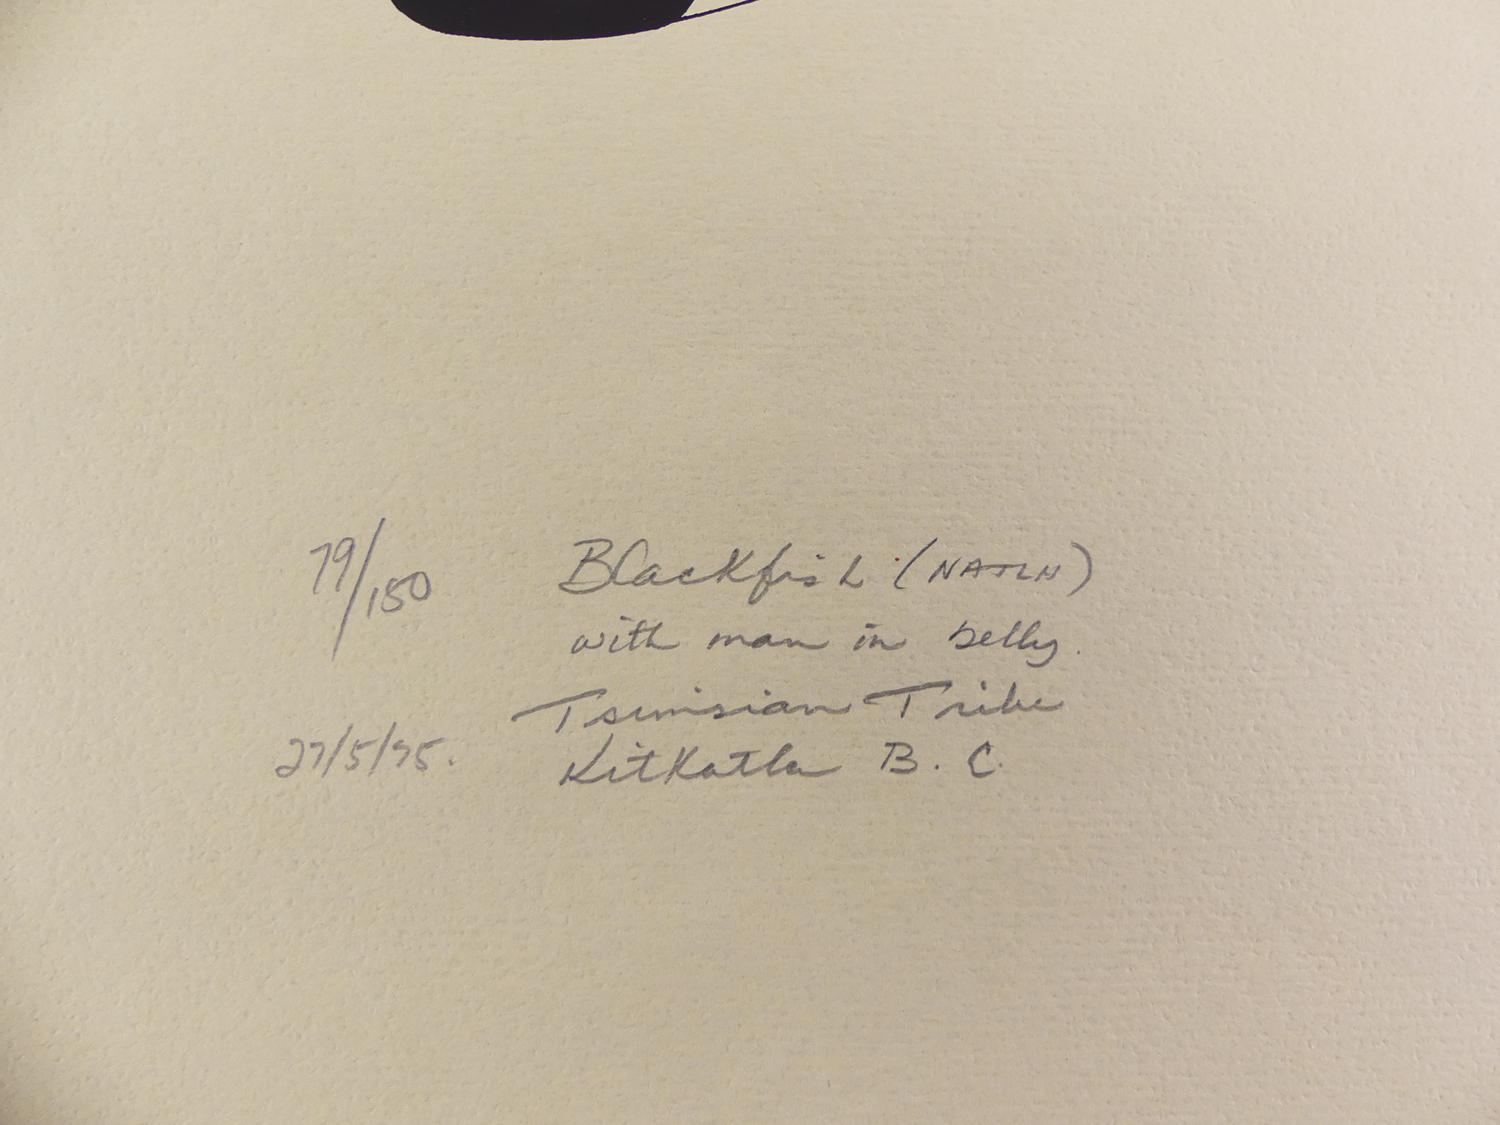 79/150
Blackfish (NATLN)
with man in belly.
Tsimsian Tribe
27/5/75.
Kitkatla B. C.